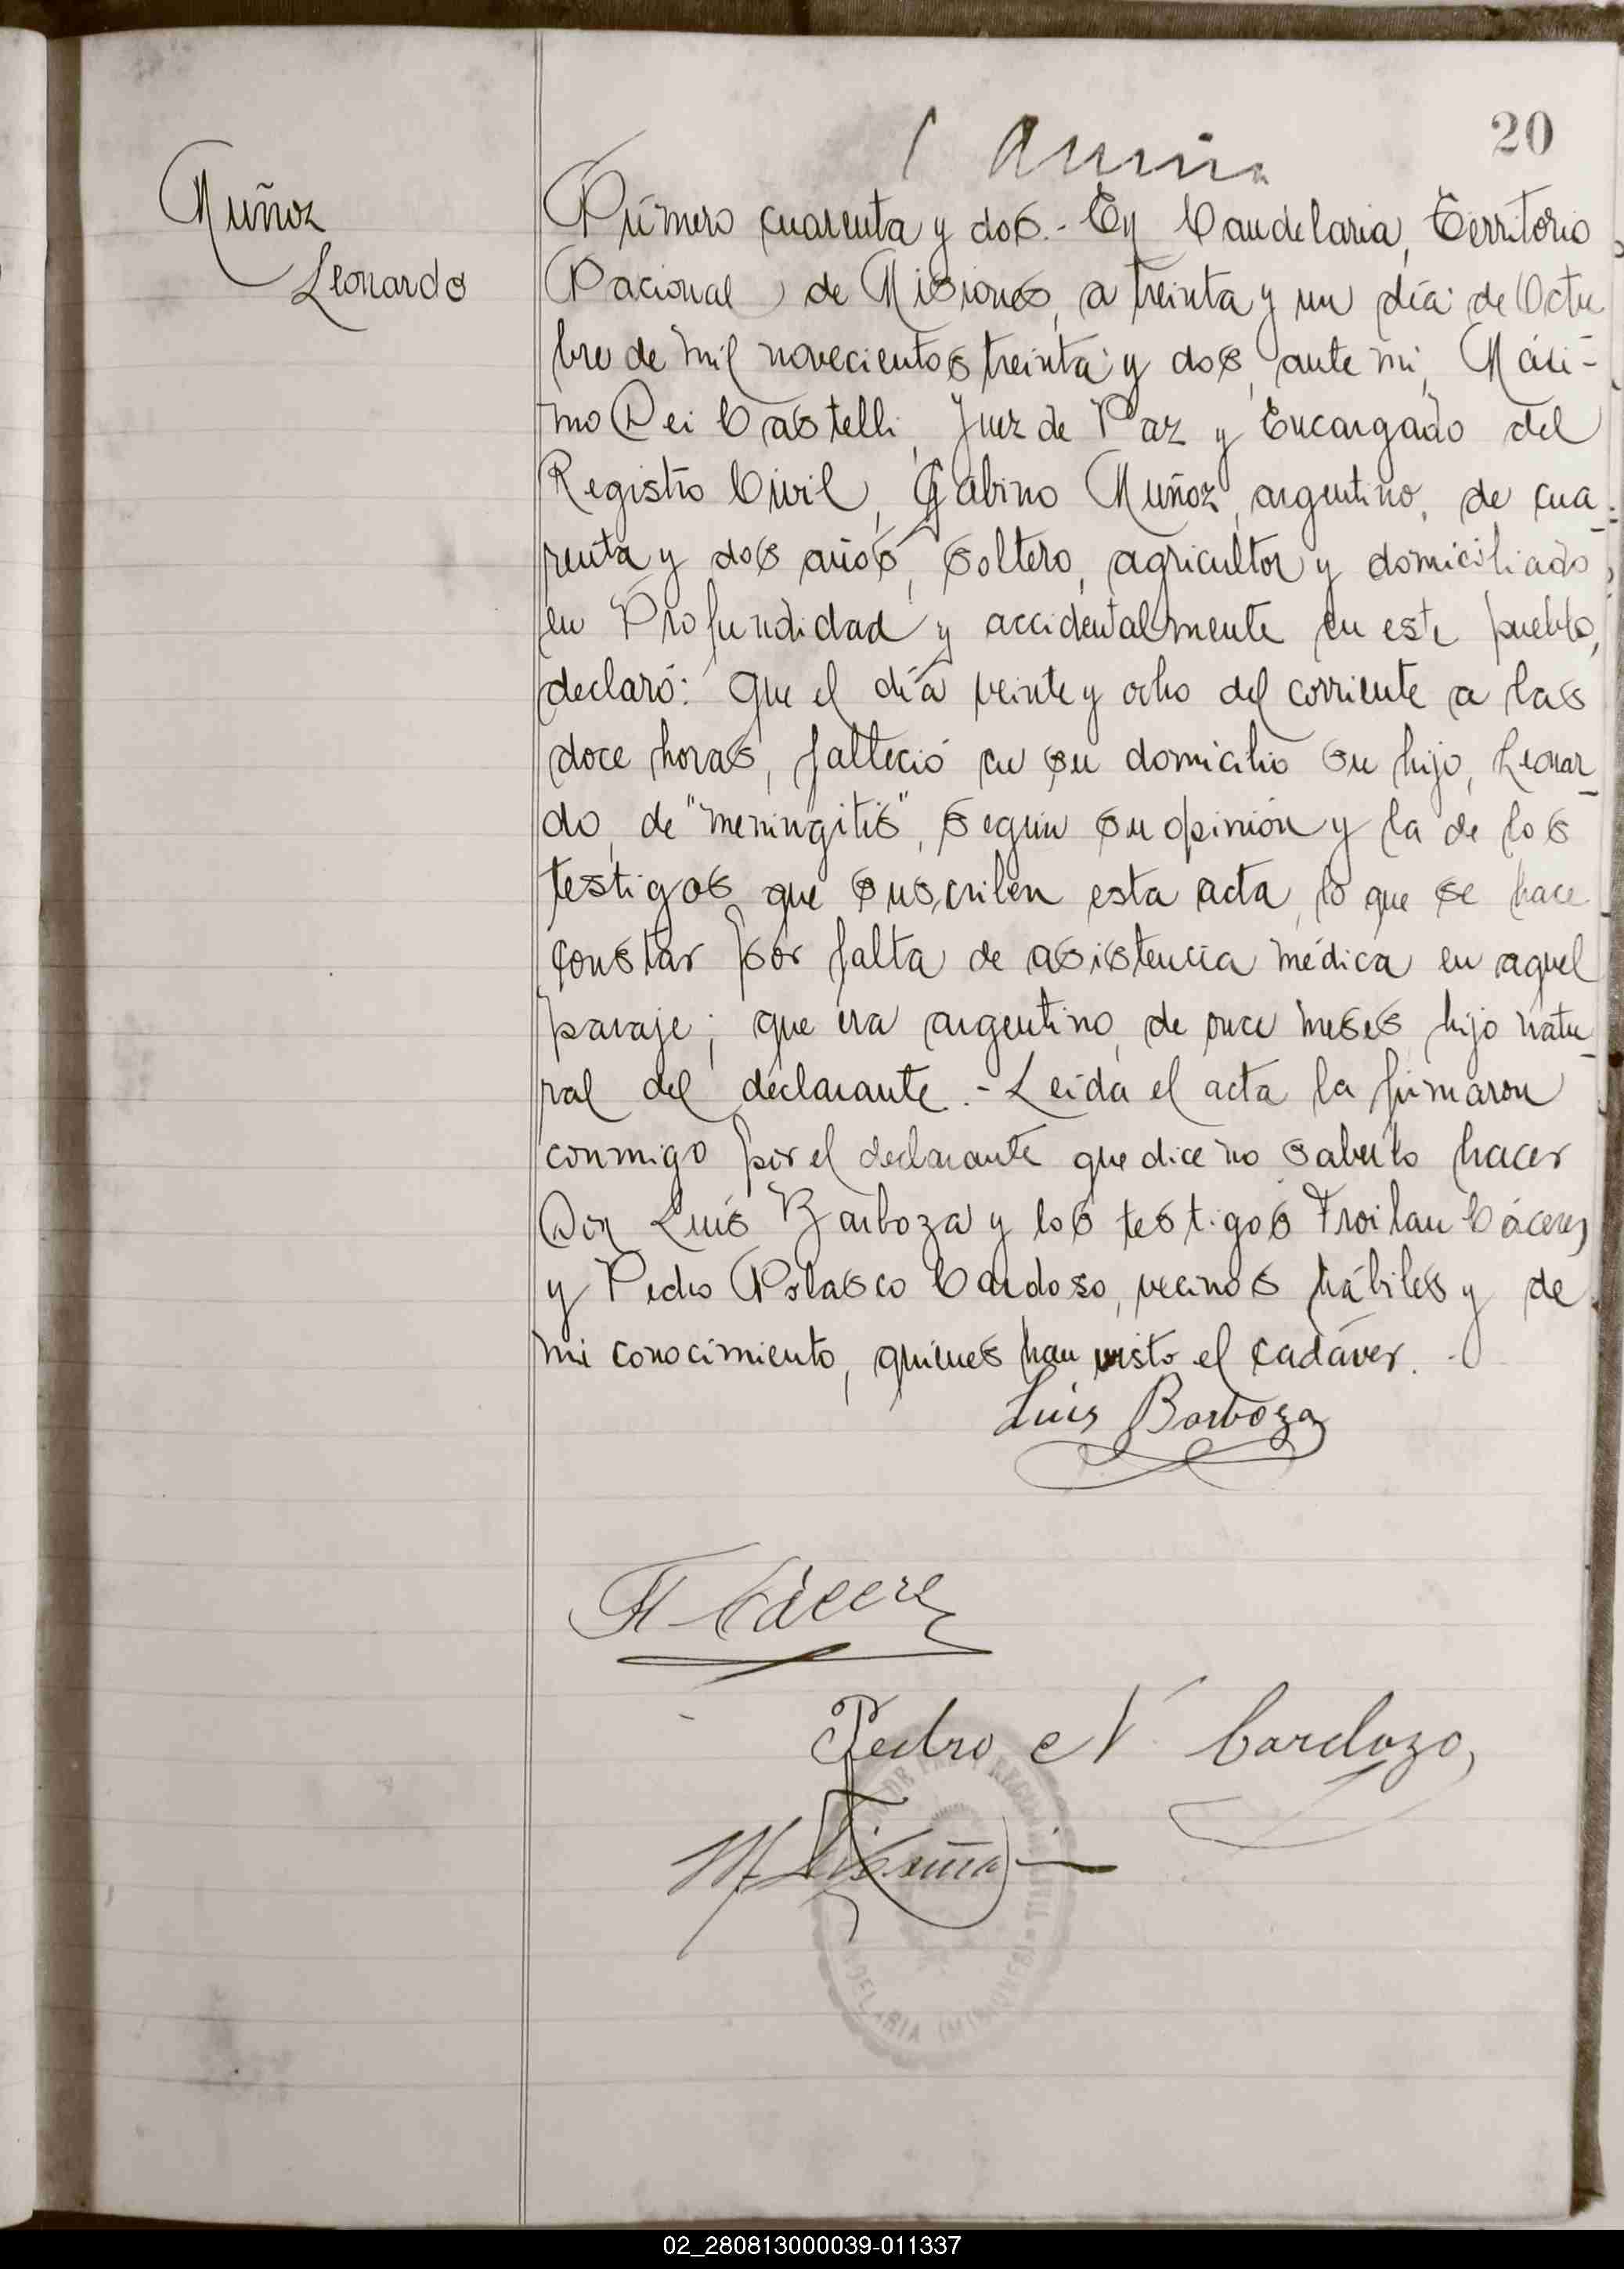 20
Muñoz
Leonardo
Número cuarenta y dos.- En Candelaria, Territorio
Nacional de Misiones, a treinta y un día de Octu
bre de mil novecientos treinta y dos, ante mi, Máxi-
mo Dei Castelli, Juez de Paz y Encargado del
Registro Civil, Gabino Muñoz, argentino, de cua-
renta y dos años, soltero, agricultor y domiciliado
en Profundidad y accidentalmente en este pueblo,
declaró: Que el día veinte y ocho del corriente a las
doce horas, falleció en su domicilio su hijo, Leonar-
do, de "meningitis", segun su opinión y la de los
testigos que suscriben esta acta, lo que se hace
constar por falta de asistencia médica en aquel
paraje; que era argentino, de once meses, hijo natu-
ral del declarante.- Leida el acta la firmaron
conmigo por el declarante que dice no saberlo hacer
Don Luis Barboza y los testigos Froilan Cáceres
y Pedro Nolasco Cardoso, vecinos hábiles y de
mi conocimiento, quienes han visto el cadáver.-
Luis Barboza
F Cáceres
Pedro N Cardozo
DE PAZ Y REGIS
CANDELARIA (MISIONES)
02_280813000039-011337